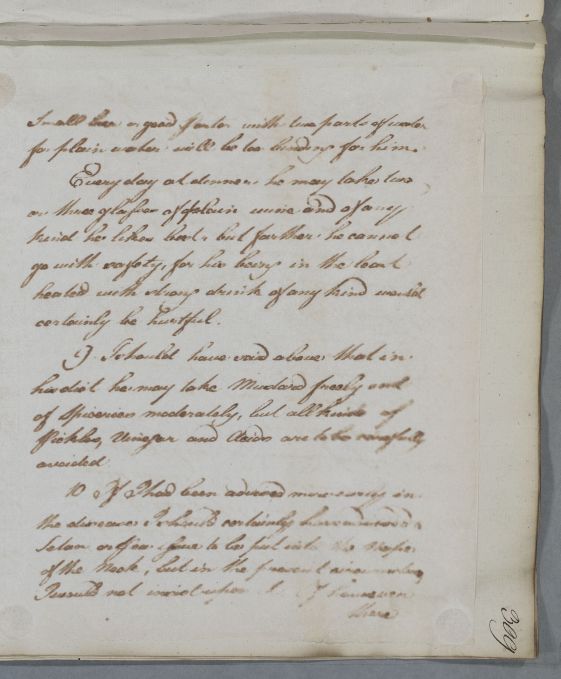 Small beer or good Porter with two parts of water
for plain water will be too binding for him.
Every day at dinner he may take two
or three glasses of plain wine and of any
kind he likes best, but farther he cannot
go with safety, for his being in the least
heated with strong drink of any kind would
certainly be hurtful.
9) I should have said above that in
his diet he may take Mustard freely and
of Spiceries moderately, but all kinds of
Pickles, Vinegar and Acids are to be carefully
avoided
10 If I had been advised more early in
the disease I should certainly have advised a
Seton or Issue to be put into the Nape
of the Neck, but in the present circumstances
I would not insist upon it. If however
there
399